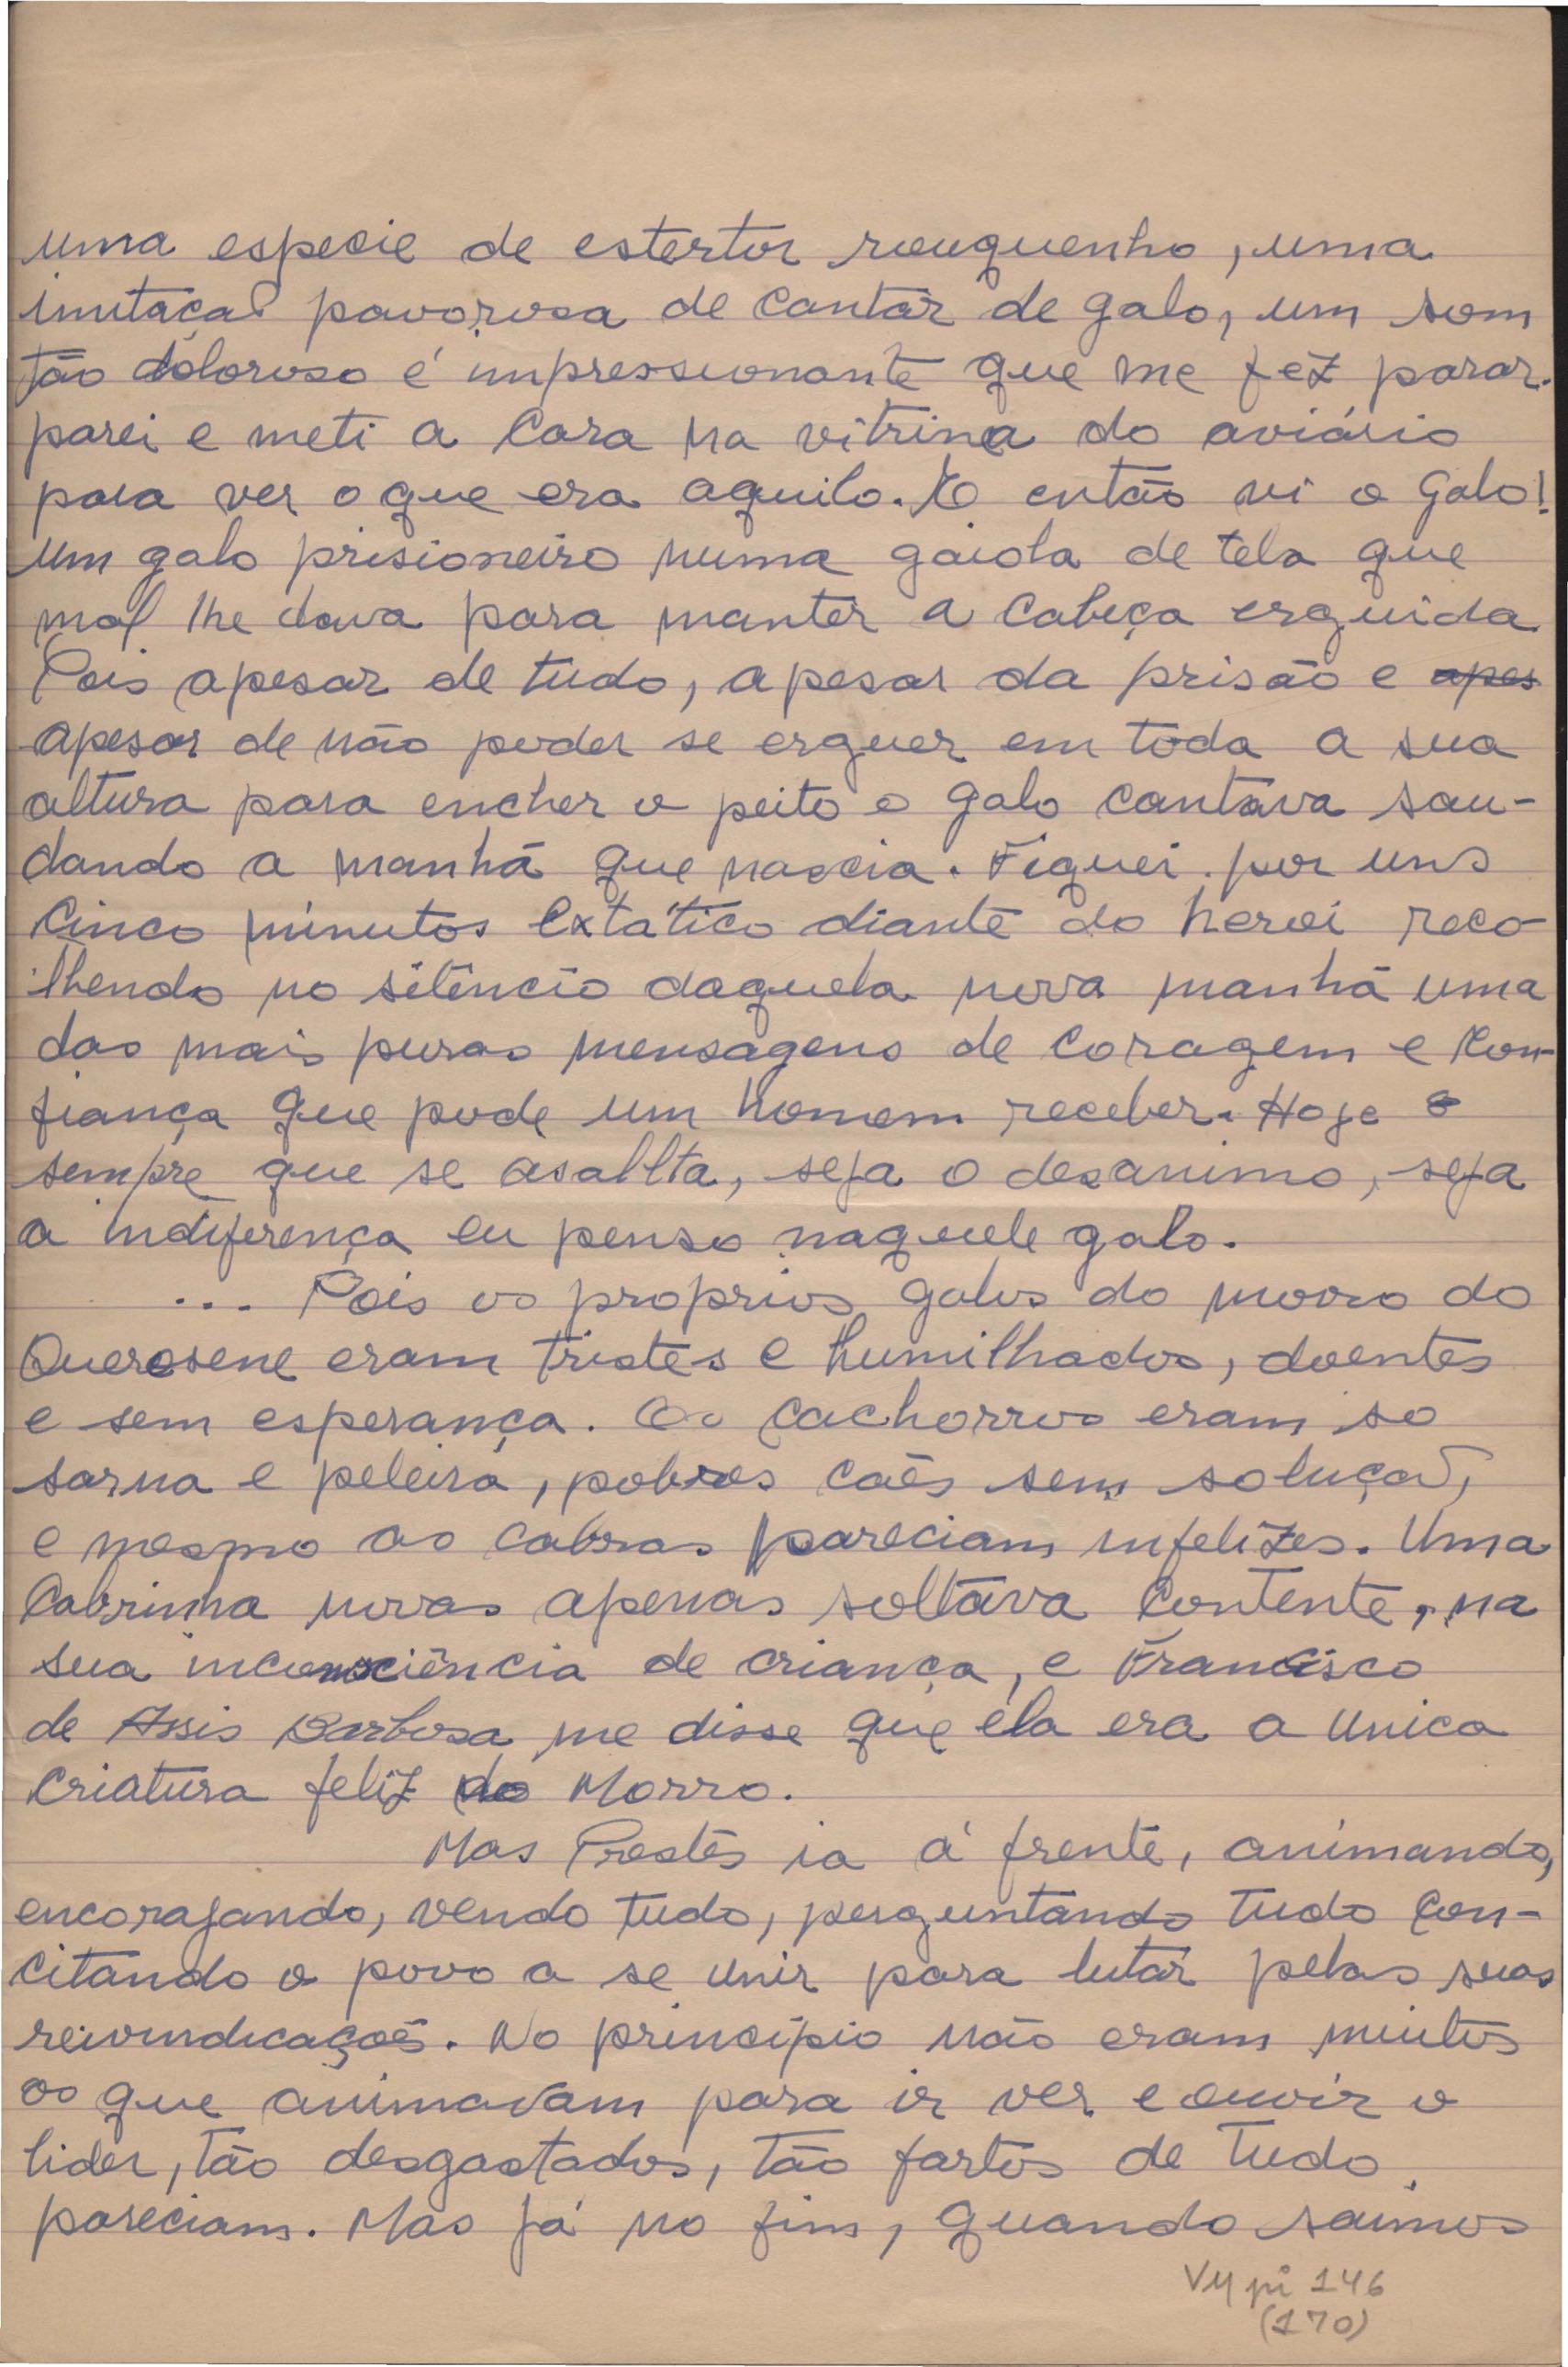 uma especie de estertor rouquenho, uma
imitação pavorosa de cantar de galo, um som
tão doloroso é impressionante que me fez parar.
parei e meti a cara na vitrina do aviário
para ver o que era aquilo. E então vi o galo!
um galo prisioneiro numa gaiola de tela que
mal lhe dava para manter a cabeça erguida
Pois apesar de tudo, apesar da prisão e apes
apesar de não poder se erguer em toda a sua
altura para encher o peito o galo cantava sau-
dando a manhã que nascia. Fiquei por uns
cinco minutos extático diante do heroi reco-
lhendo no silêncio daquela nova manhã uma
das mais puras mensagens de coragem e con-
fiança que pode um homem receber. Hoje e
sempre que se asallta, seja o desanimo, seja
a indiferença eu penso naquele galo.
... Pois os proprios galos do morro do
Querosene eram tristes e humilhados, doentes
e sem esperança. Os cachorros eram so
sarna e peleira, pobres cães sem solução,
e mesmo as cabras pareciam infelizes. Uma
cabrinha novas apenas soltava contente, na
sua inconsciência de criança, e Francisco
de Assis Barbosa me disse que ela era a unica
criatura feliz do Morro.
Mas Prestes ia á frente, animando,
encorajando, vendo tudo, perguntando tudo con-
citando o povo a se unir para lutar pelas suas
reivindicações. No principio não eram muitos
os que animavam para ir ver e ouvir o
lider, tão desgastados, tão fartos de tudo
pareciam. Mas já no fim, quando saimos
VM pi 146
(170)